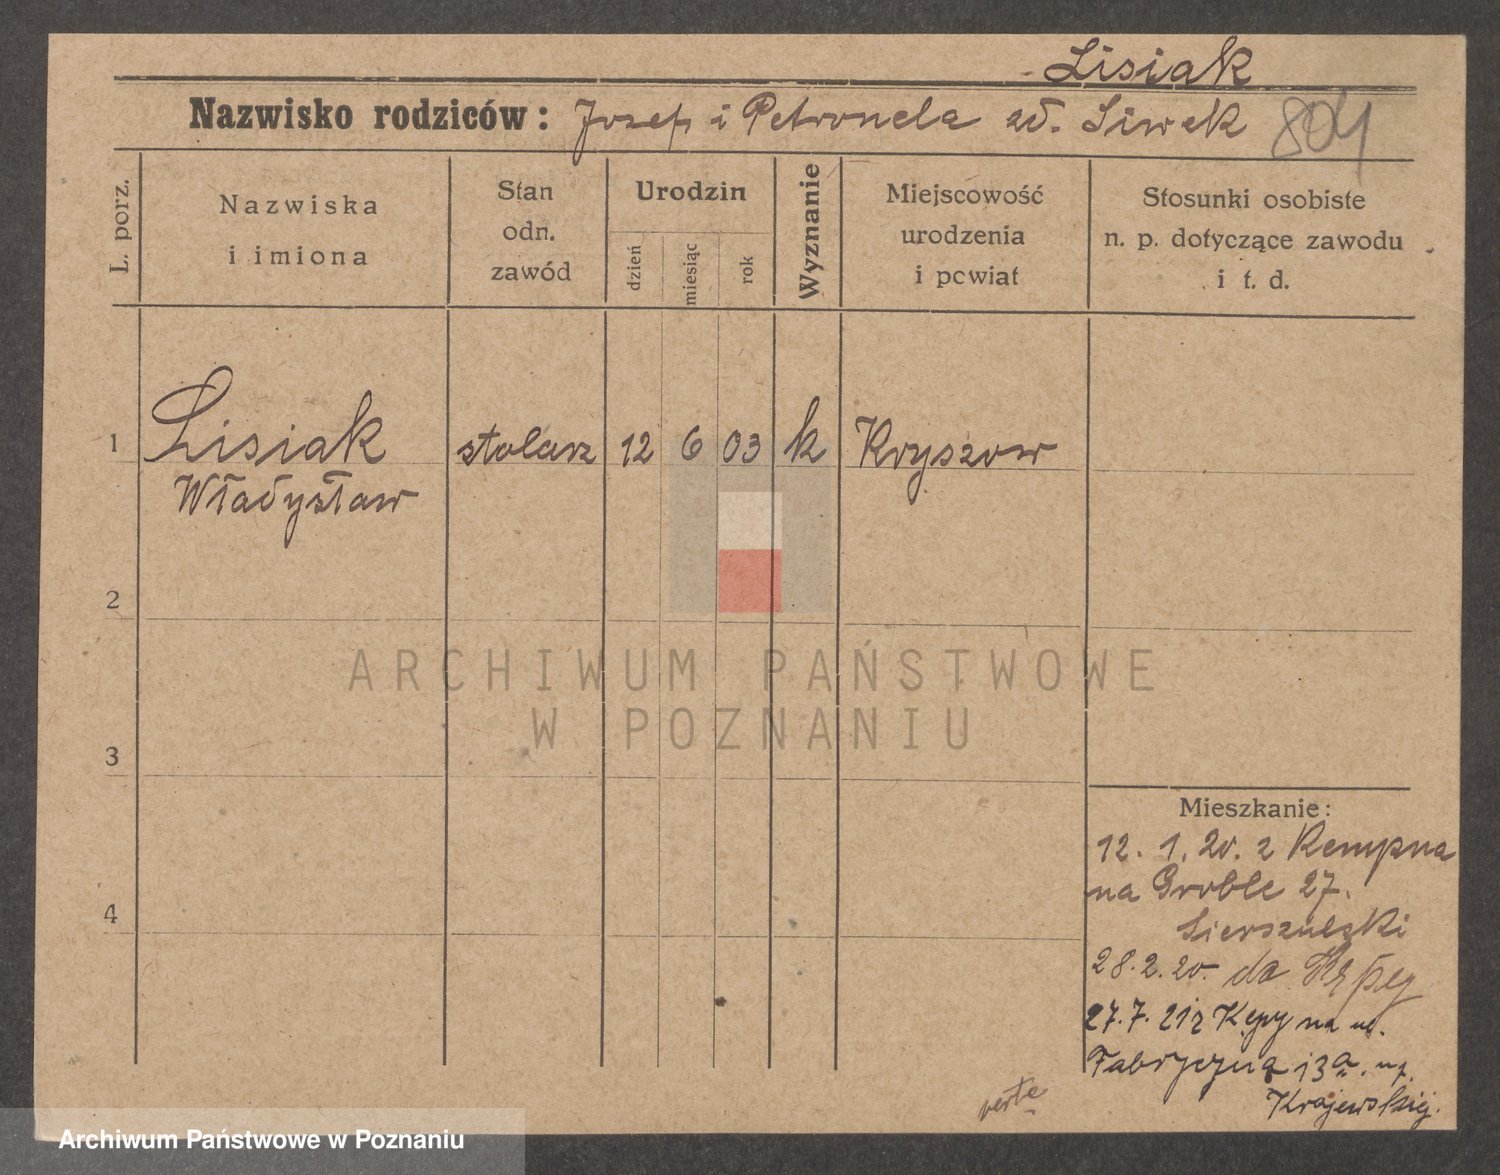 Lisiak
Nazwisko rodziców: Józef i Petronela zd. Siwek 804
L. porz.
Nazwiska i imiona
Stan odn. zawód
Urodzin
dzień
miesiąc
rok
Wyznanie
Miejscowość urodzenia i powiat
Stosunki osobiste n. p. dotyczące zawodu i t. d.
1 Lisiak stolarz 12 6 03 k Kryszow
Władysław
2
3
4
ARCHIWUM PAŃSTWOWE
W POZNANIU
Mieszkanie:
12. 1. 20. z Kempna
na Groble 27.
28.2.20. do
27.7.21 z Kępy na ul.
Fabryczną 13a.
Krajewskiej.
verte
Archiwum Państwowe w Poznaniu